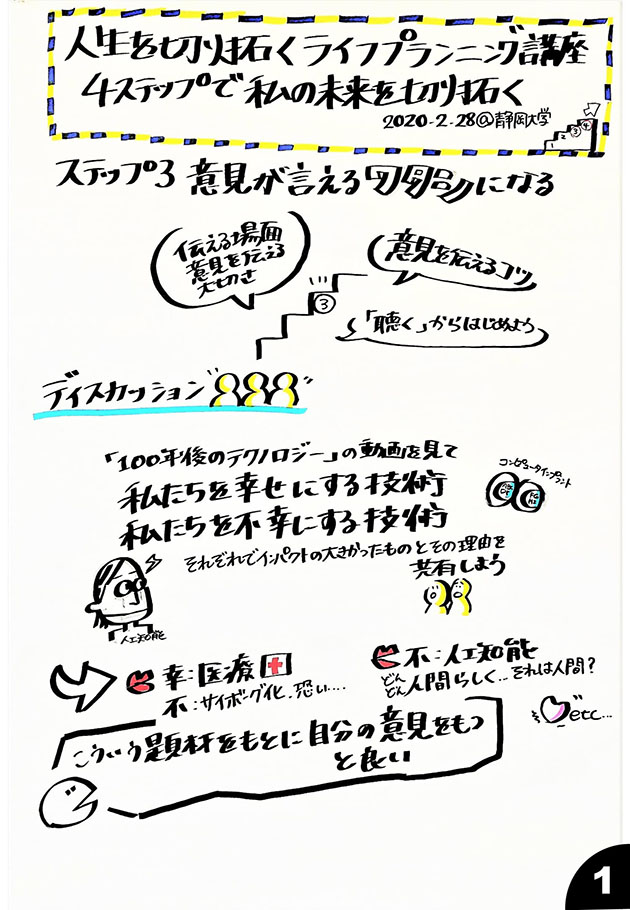 人生を切り拓くライフプランニング講座
4ステップで私の未来を切り拓く
2020-2-28@静岡大学
③
④
ステップ3 意見が言えるになる
伝える場面
意見を伝える
大切さ
意見を伝えるコツ
③
「聴く」からはじめよう
ディスカッション
「100年後のテクノロジー」の動画を見て
コンピュータインプラント
私たちを幸せにする技術
私たちを不幸にする技術
それぞれでインパクトの大きかったものとその理由を
共有しよう
人工知能
幸:医療
不:サイボーグ化、恐い....
不:人工知能
どんどん人間らしく...それは人間?
etc...
こういう題材をもとに自分の意見をもつ
と良い
1